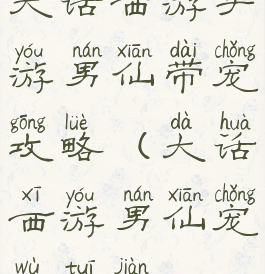 大话西游手
yóu nán xiān dài chǒng
游男仙带宠
gōng lüè dà huà
攻略（大话
xī yóu nán xiān chǒng
西游男仙宠
wù tuī jiàn